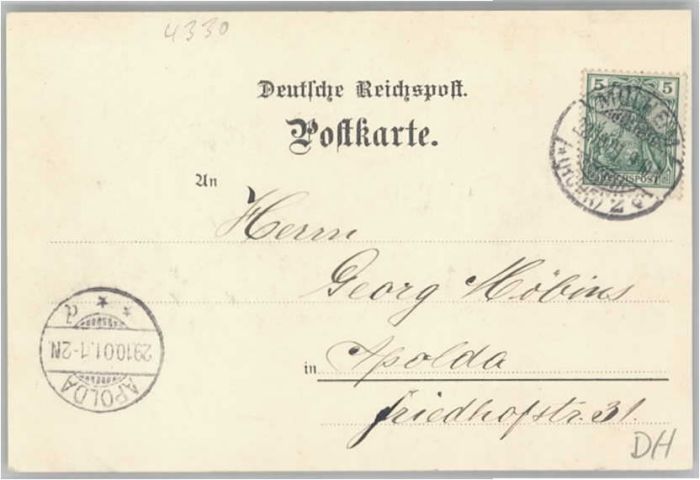 4330
Deutsche Reichspost.
Postkarte.
5 5
REICHSPOST
An
Herrn
Georg Möbius
in Apolda
Friedhofstr. 31.
APOLDA
29.10.01.1-2N.
DH